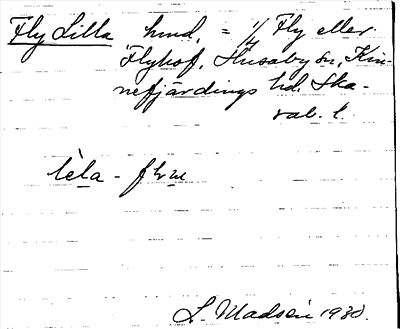 Fly Lilla hmd. = 1/4 Fly eller
Flyhof, Husaby sn, Kin-
nefjärdings hd. Ska-
rab. l.
lèla - 
L. Madsén 1930.